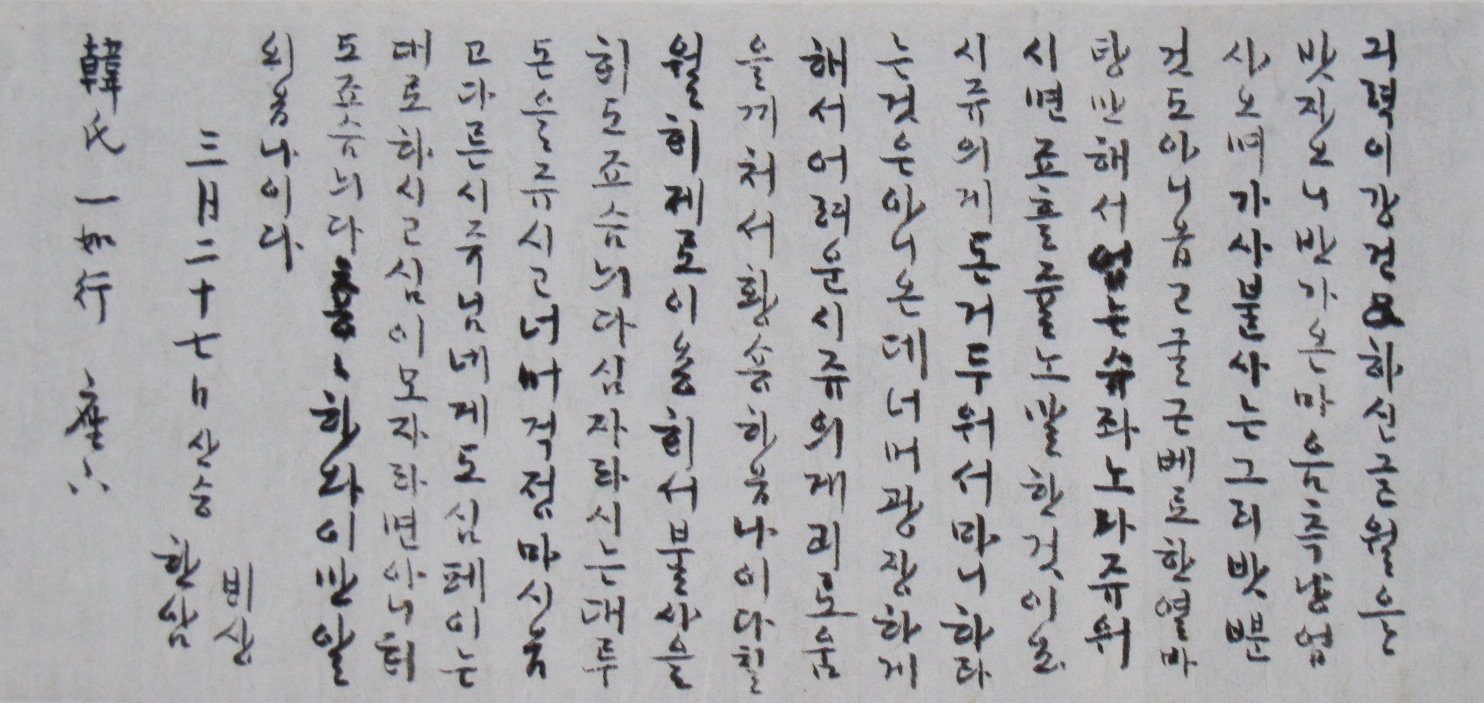 긔력이강건하신근월은
밧잡오니반가온마음측냥업
사오며가사불사는그리밧뿐
것도아니옵고굴근베로한열마
탕만해서업는슈좌노나쥬워
시면죠흘쥴노말한것이온
시쥬의게돈거두워서마니하라
는것은아니온데너머광장하게
해서어려운시쥬의게괴로움
을끼처서황송하옵나이다칠
월히제도이송히서불사을
히도죠슴늬다심자라시는대루
돈을쥬시고너머걱정마시옵
고다른시쥬님네게도심페이는
대로하시고심이모자라면아니혀
도죠슴늬다 하라이만알
외옵나이다
三月二十七日 산승
비산
한암
韓氏一如行 座下